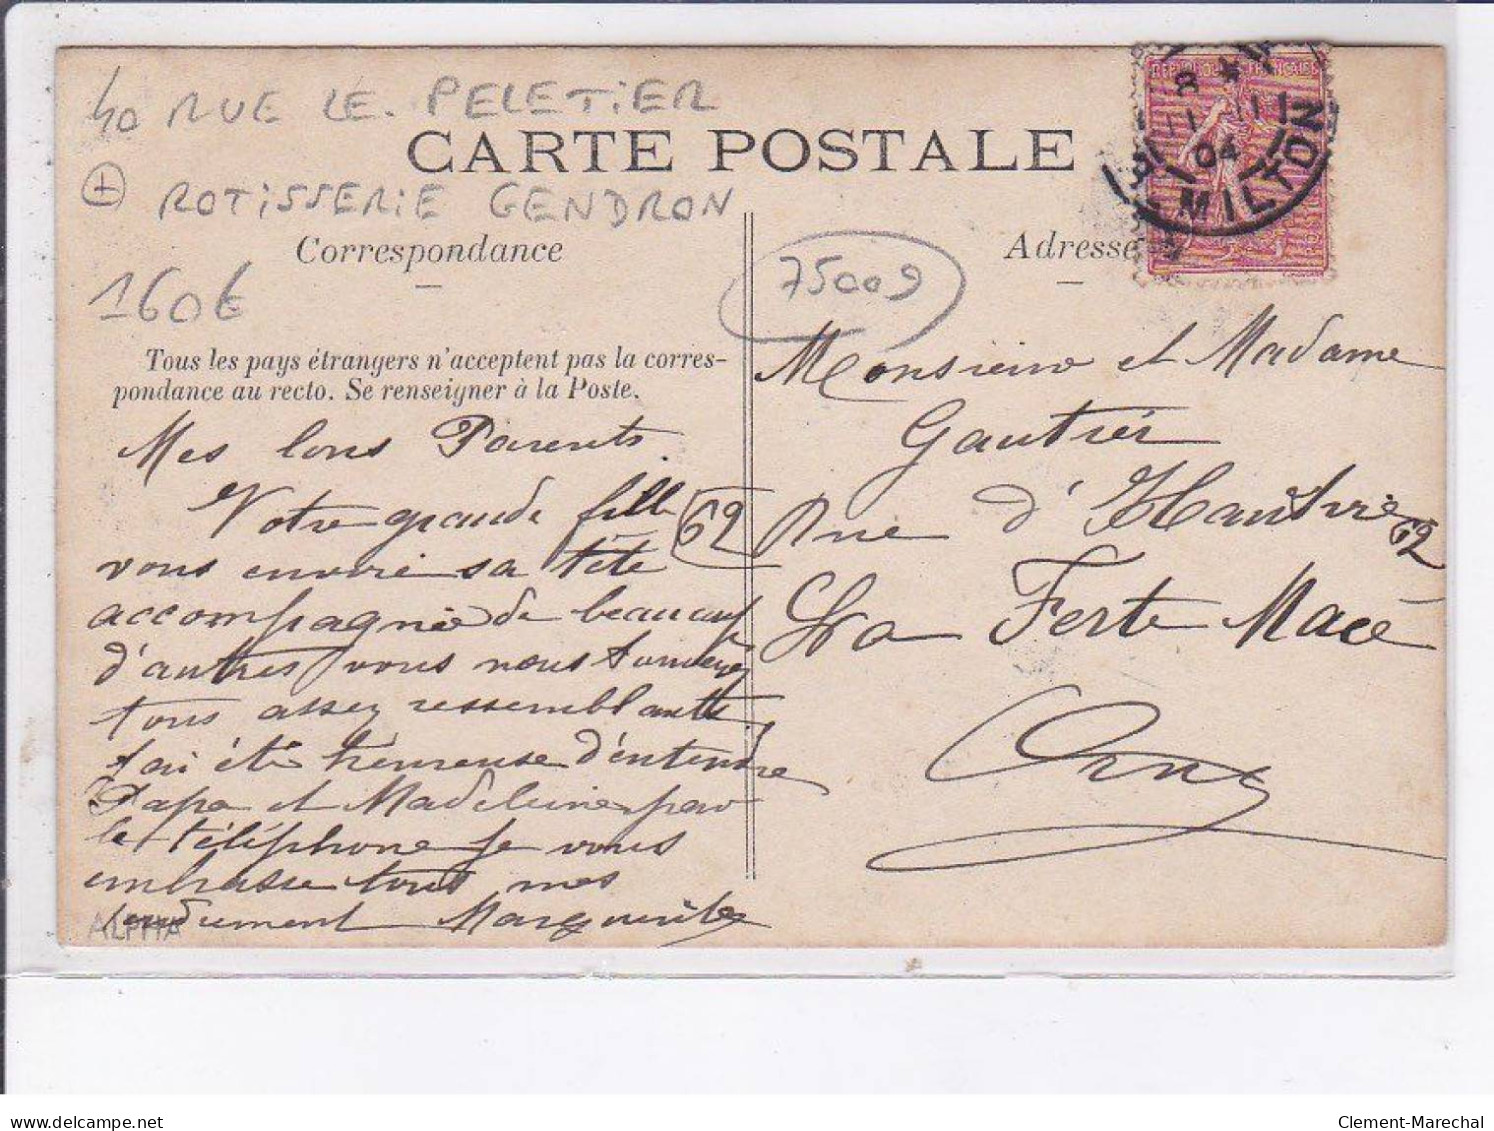 40 RUE LE PELETIER
CARTE POSTALE
+ ROTISSERIE GENDRON
Correspondance
160€
Tous les pays étrangers n'acceptent pas la corres-
pondance au recto. Se renseigner à la Poste.
Mes bons Parents.
Votre grande fille
vous envoie sa tête
accompagnée de beaucoup
d'autres vous nous
tous assez ressemblants
J'ai été heureuse d'entendre
Papa et Madeleine par
le téléphone je vous
embrasse tous mes
tendrement Marguerite
ALPHA
Adresse
75009
REPUBLIQUE FRANÇAISE
8
11 - 11
04
MILTON
Monsieur et Madame
Gautier
62 Rue d'Hautvie 62
La Ferté Macé
Orne
Clement-Marechal
delcampe.net